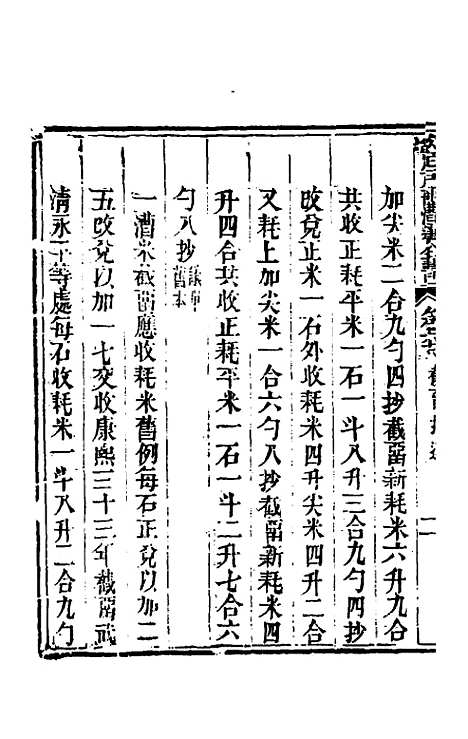 加尖米二合九勺四抄截留新耗米六升九合
共收正耗平米一石一斗八升三合九勺四抄
改兌正米一石外收耗米四升尖米四升二合
又耗上加尖米一合六勺八抄截留新耗米四
升四合共收正耗平米一石一斗二升七合六
勺八抄
一漕米截留應收耗米舊例每石正兌以加二
五改兌以加一七交收康熙三十三年截留武
清永平等處每石收耗米一斗八升二合九勺